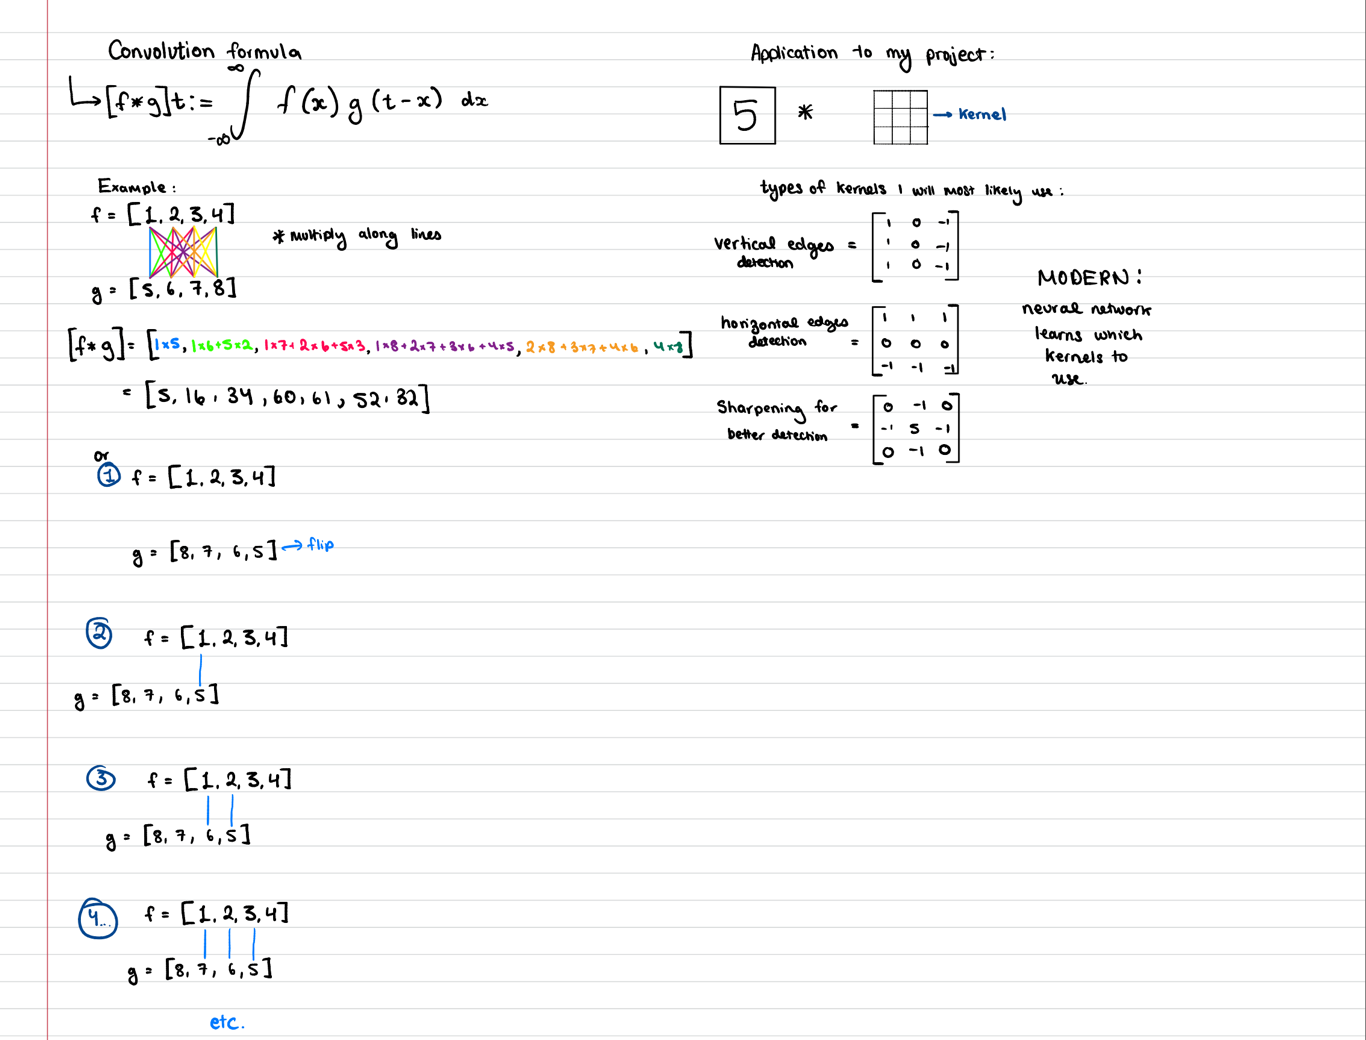 Convolution formula
[f*g]t:= ∞ ∫ -∞ f(x) g(t-x) dx
Example:
f = [1, 2, 3, 4]
* multiply along lines
g = [5, 6, 7, 8]
[f*g] = [1x5, 1x6+5x2, 1x7+2x6+5x3, 1x8+2x7+3x6+4x5, 2x8+3x7+4x6, 4x8]
= [5, 16, 34, 60, 61, 52, 32]
or
1 f = [1, 2, 3, 4]
g = [8, 7, 6, 5] → flip
2 f = [1, 2, 3, 4]
g = [8, 7, 6, 5]
3 f = [1, 2, 3, 4]
g = [8, 7, 6, 5]
4... f = [1, 2, 3, 4]
g = [8, 7, 6, 5]
etc.
Application to my project:
5 * → Kernel
types of kernels I will most likely use:
vertical edges
detection
=
1 0 -1
1 0 -1
1 0 -1
horizontal edges
detection
=
1 1 1
0 0 0
-1 -1 -1
Sharpening for
better detection
=
0 -1 0
-1 5 -1
0 -1 0
MODERN:
neural network
learns which
kernels to
use.